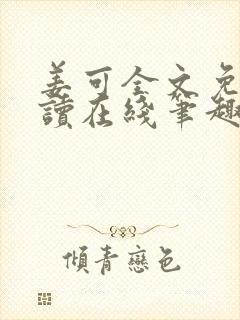 姜可全文免
讀在綫笔趣
傾青戀色